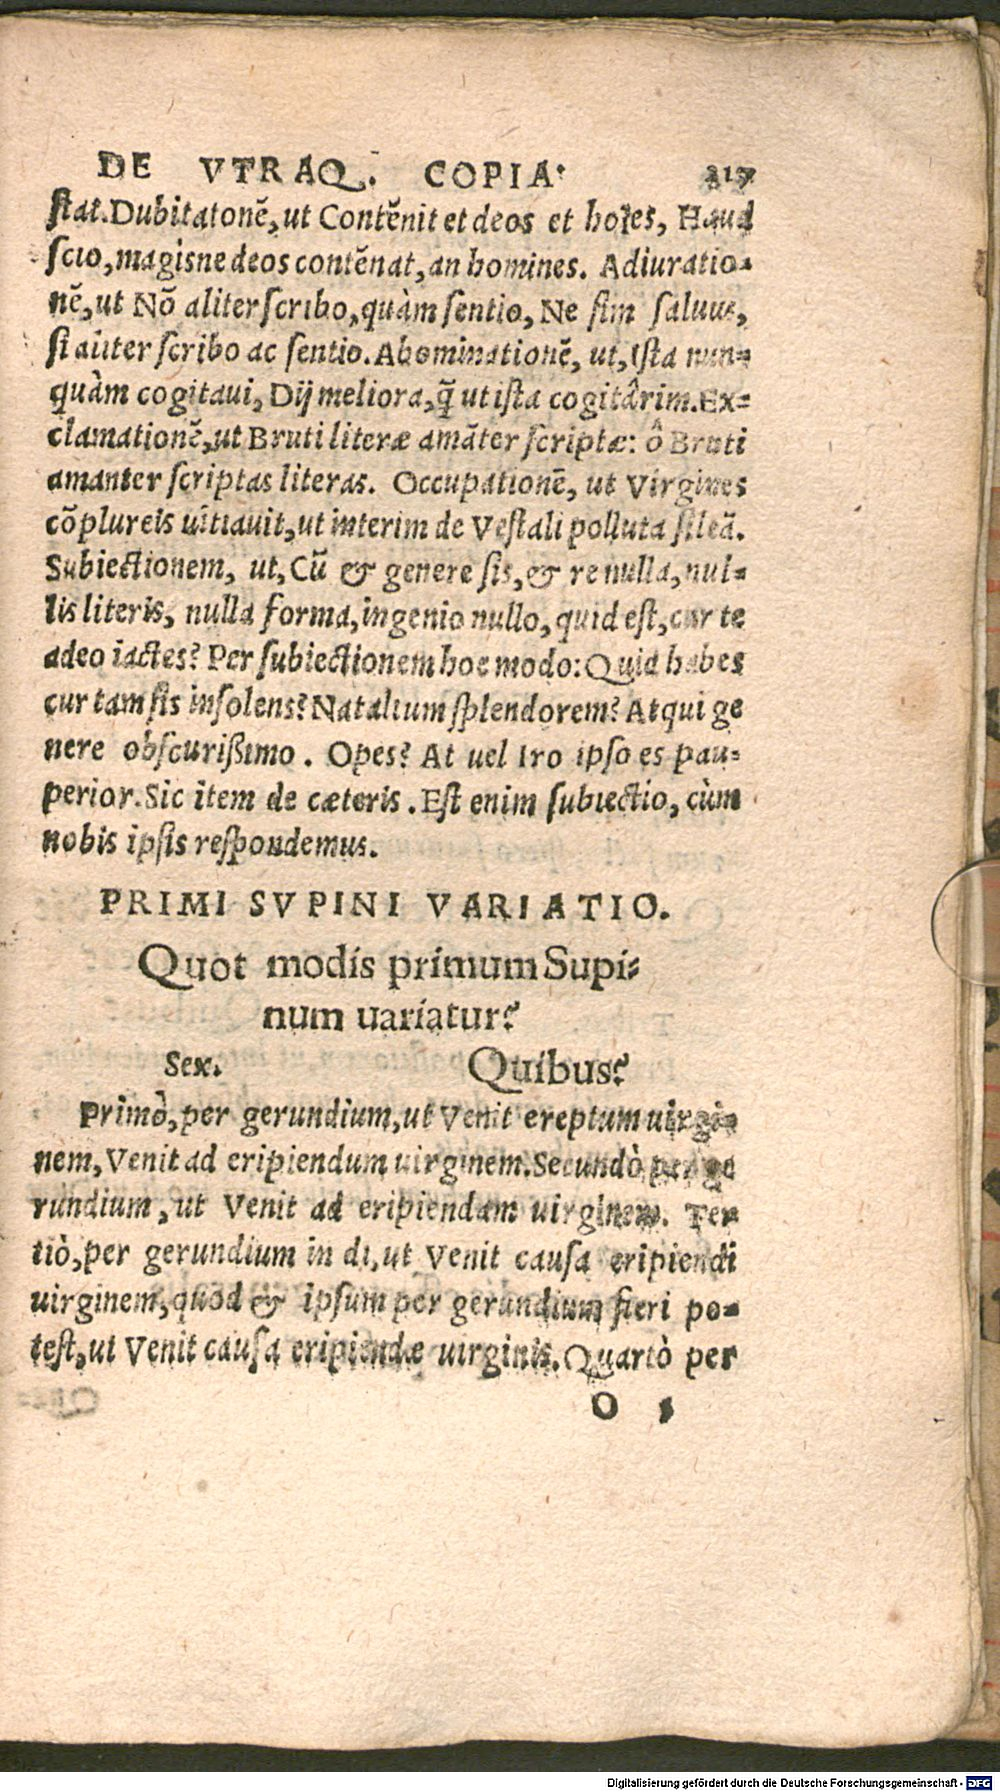 DE VTRAQ. COPIA. 217
stat. Dubitatonē, ut Contēnit et deos et hoīes, Haud
scio, magisne deos contēnat, an homines. Adiuratio-
nē, ut Nō aliter scribo, quàm sentio, Ne sim saluus,
si aliter scribo ac sentio. Abominationē, ut, Ista nun-
quàm cogitaui, Dij meliora, q̃ ut ista cogitârim. Ex-
clamationē, ut Bruti literæ amāter scriptæ: ô Bruti
amanter scriptas literas. Occupationē, ut Virgines
cōplureis uitiauit, ut interim de Vestali polluta sileā.
Subiectionem, ut, Cū & genere sis, & re nulla, nul-
lis literis, nulla forma, ingenio nullo, quid est, cur te
adeo iactes? Per subiectionem hoc modo: Quid habes
cur tam sis insolens? Natalium splendorem? Atqui ge
nere obscurißimo. Opes? At uel Iro ipso es pau-
perior. Sic item de cæteris. Est enim subiectio, cùm
nobis ipsis respondemus.
PRIMI SVPINI VARIATIO.
Quot modis primum Supi-
num uariatur?
Sex. Quibus?
Primò, per gerundium, ut Venit ereptum uirgi-
nem, Venit ad eripiendum uirginem. Secundò per ge
rundium, ut Venit ad eripiendam uirginem. Ter
tiò, per gerundium in di, ut Venit causa eripiendi
uirginem, quod & ipsum per gerundium fieri po-
test, ut Venit causa eripiendæ uirginis. Quartò per
O
Digitalisierung gefördert durch die Deutsche Forschungsgemeinschaft - DFG